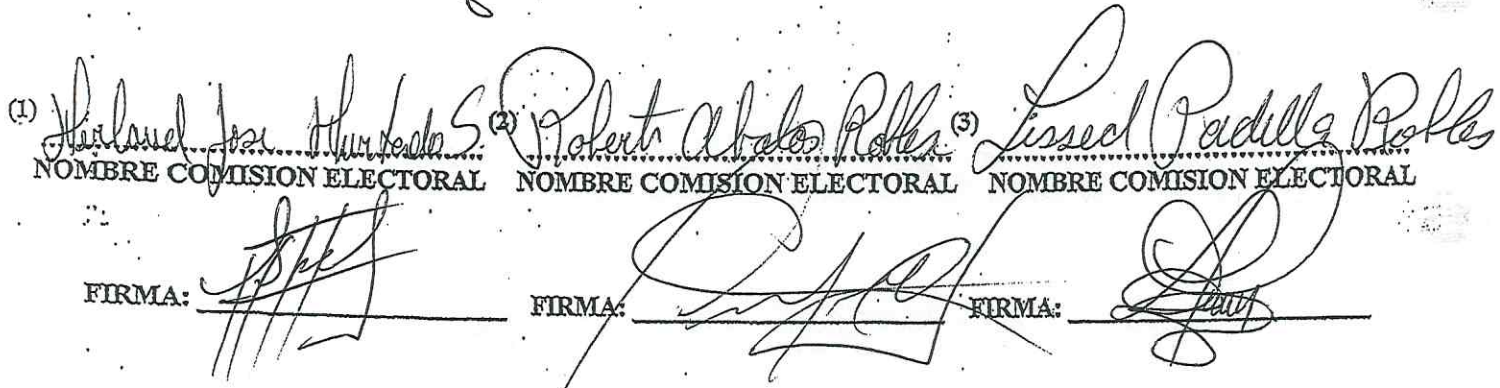 (1) Herland Jose Hurtado S. (2) Robert Abalos Robles (3) Lissed Padilla Robles
NOMBRE COMISION ELECTORAL NOMBRE COMISION ELECTORAL NOMBRE COMISION ELECTORAL
FIRMA: FIRMA: FIRMA: